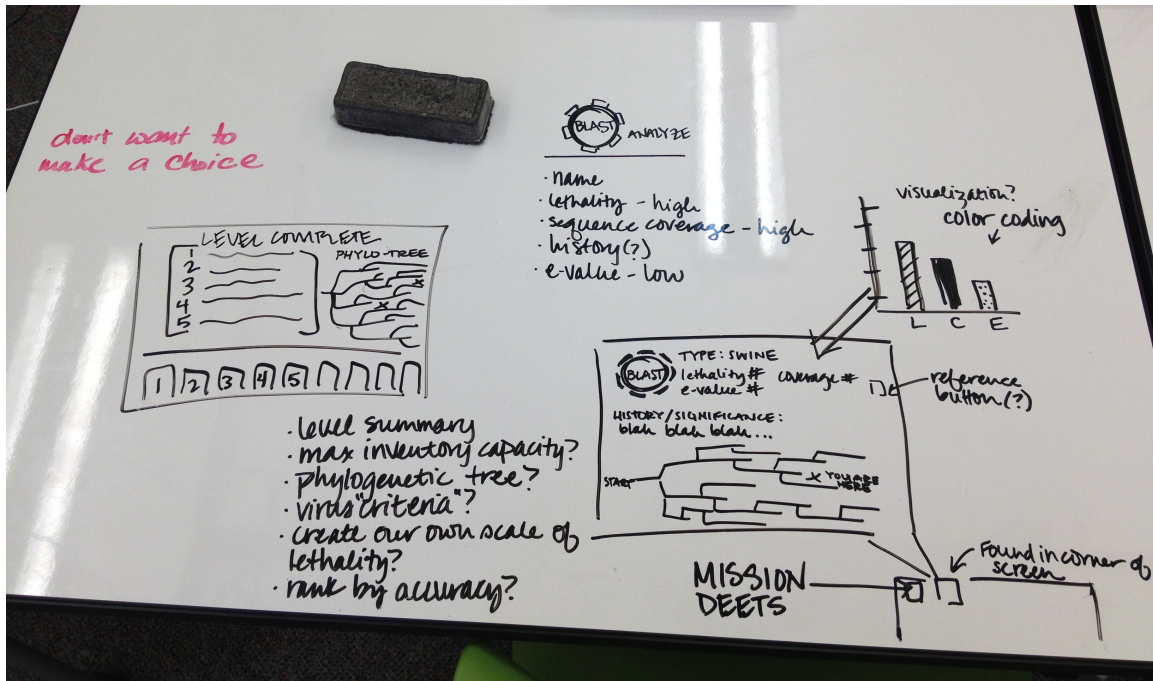 don't want to
make a choice
BLAST
ANALYZE
· name
· lethality - high
· sequence coverage - high
· history(?)
· e-value - low
visualization?
color coding
L C E
LEVEL COMPLETE
PHYLO-TREE
1
2
3
4
5
1 2 3 4 5
· level summary
· max inventory capacity?
· phylogenetic tree?
· virus "criteria"?
· create our own scale of
lethality?
· rank by accuracy?
BLAST
TYPE: SWINE
lethality # coverage #
e-value #
HISTORY/SIGNIFICANCE:
blah blah blah...
START
X YOU ARE
HERE
reference
button(?)
Found in corner of
screen
MISSION
DEETS